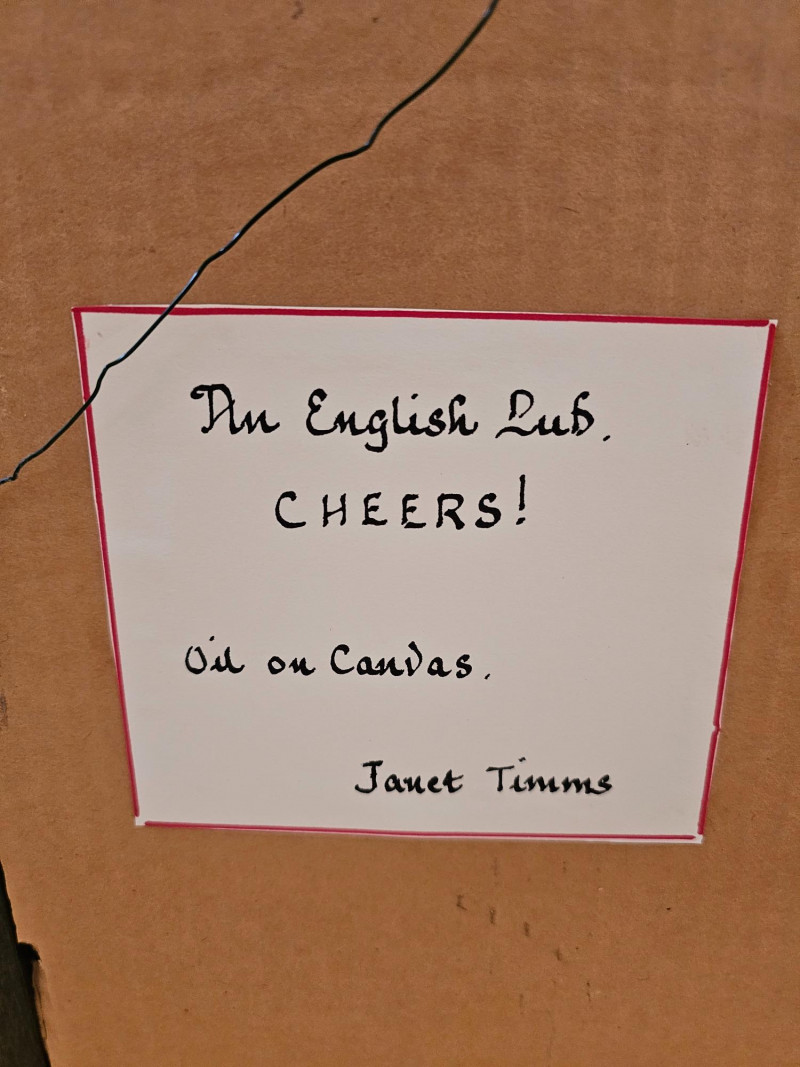 An English Pub.
CHEERS!
Oil on Canvas.
Janet Timms